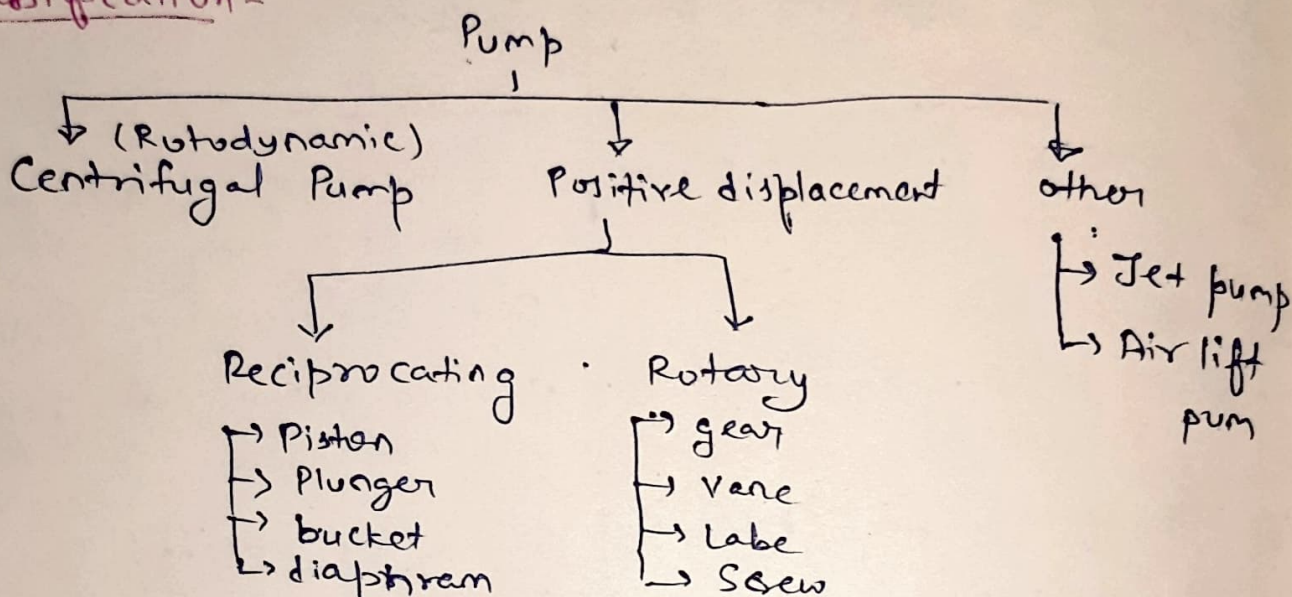 Pump
(Rotodynamic)
Centrifugal Pump
Positive displacement
other
Jet pump
Air lift
pum
Reciprocating
Piston
Plunger
bucket
diaphram
Rotary
gear
vane
Labe
Screw